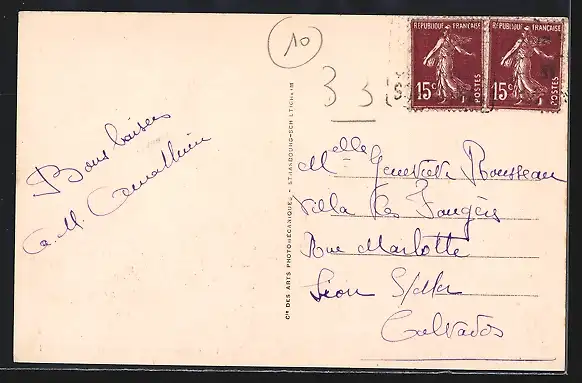 10
33
RÉPUBLIQUE FRANÇAISE
15c POSTES
RÉPUBLIQUE FRANÇAISE
15c POSTES
Bons baisers
Cie DES ARTS PHOTOMÉCANIQUES - STRASBOURG-SCHILTIGHEIM
Mlle Geneviève Rousseau
Villa les Fougères
Rue Marlotte
Lion S/Mer
Calvados